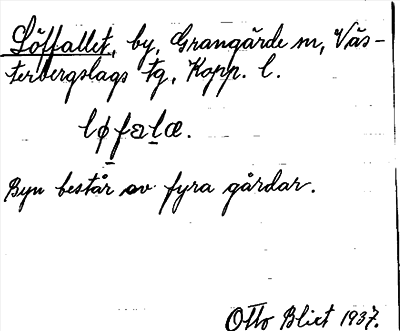 Löffallet, by, Grangärde sn, Väs-
terbergslags tg, Kopp. l.
løfalæ.
Byn består av fyra gårdar.
Otto Blixt 1937.